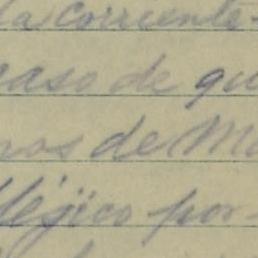 la corriente
caso de qu
nos de M
légico por